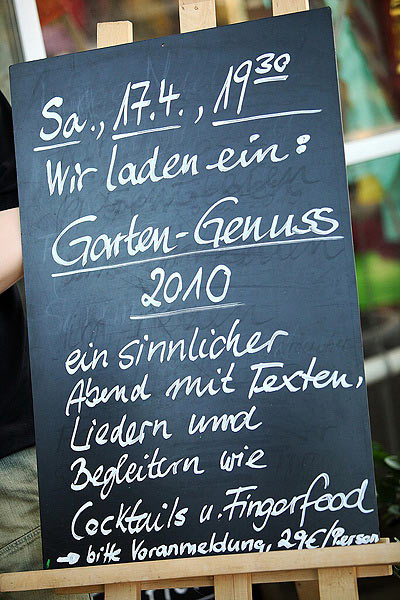 Sa., 17.4., 19³⁰
Wir laden ein:
Garten-Genuss
2010
ein sinnlicher
Abend mit Texten,
Liedern und
Begleitern wie
Cocktails u. Fingerfood
→ bitte Voranmeldung, 29€/Person